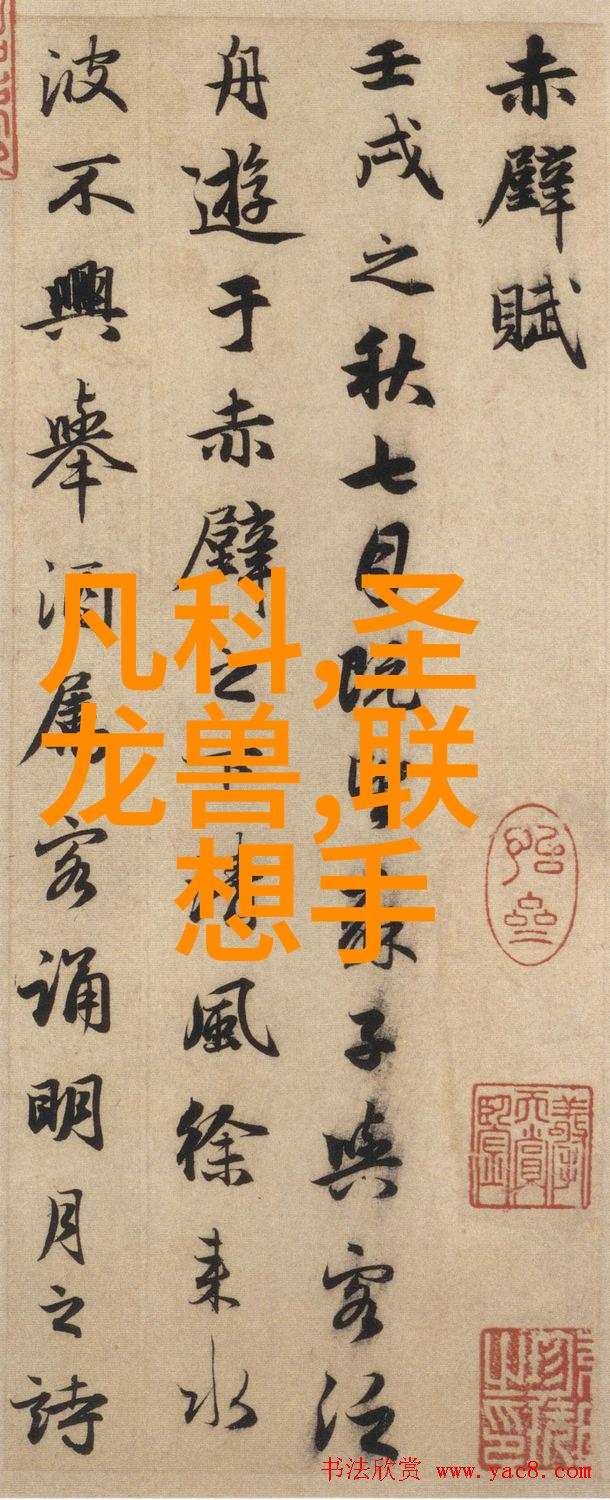 赤壁賦
壬戌之秋七月既望蘇子與客泛
舟遊于赤壁之下清風徐来水
波不興舉酒屬客誦明月之詩
凡科,圣
龙兽,联
想手
书法欣赏 www.yac8.com